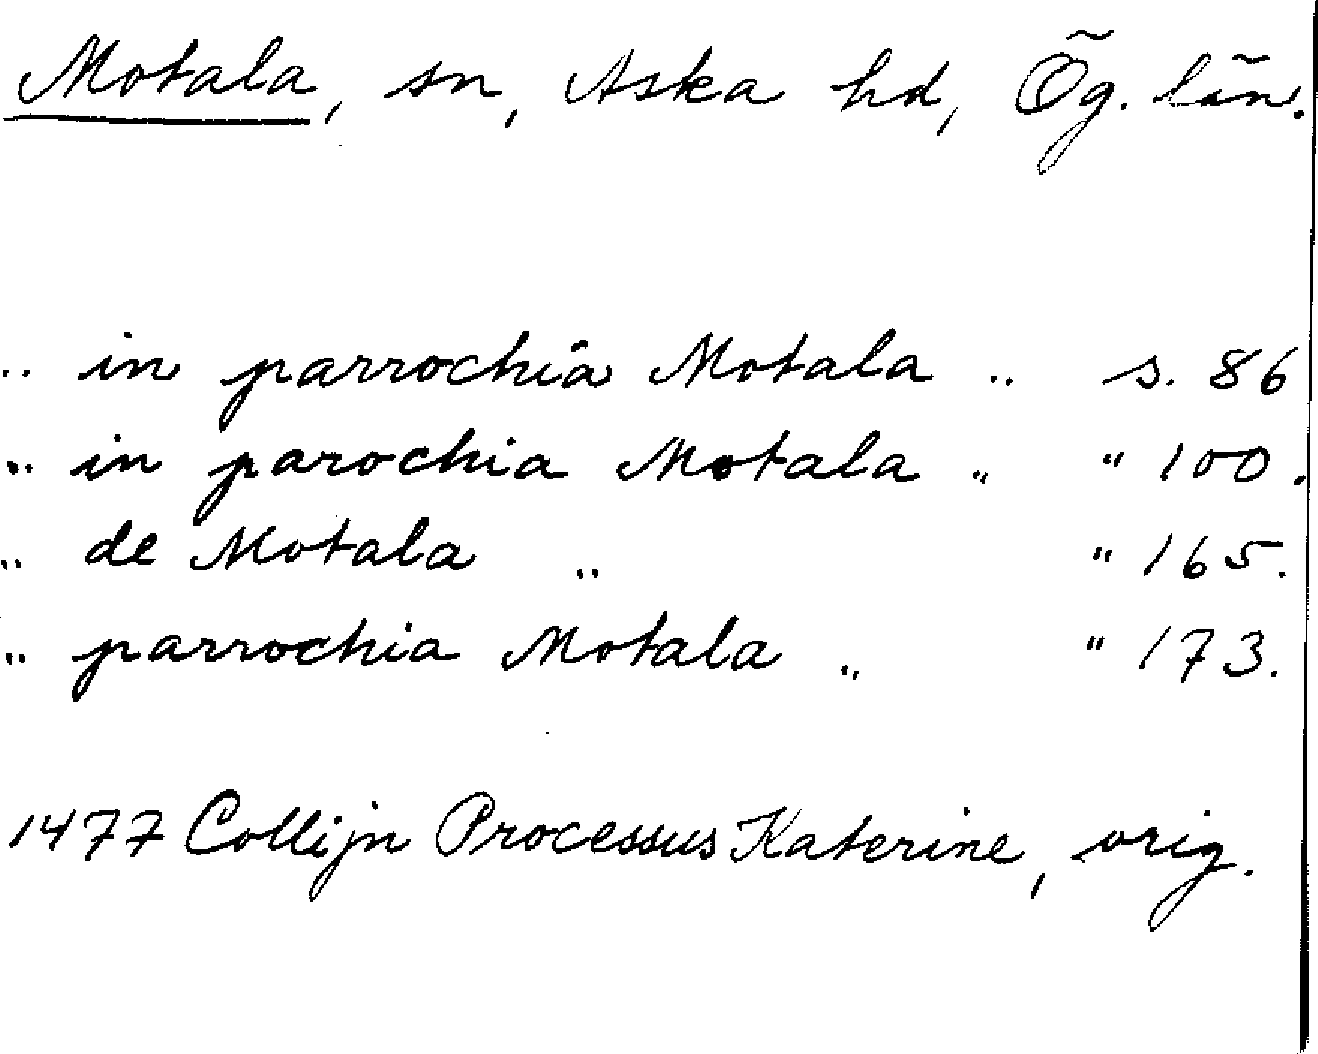 Motala, sn, Aska hd, Ög. län.
.. in parrochia Motala .. s. 86
.. in parochia Motala .. " 100.
.. de Motala .. " 165.
.. parrochia Motala .. " 173.
1477 Collijn Processus Katerine, orig.